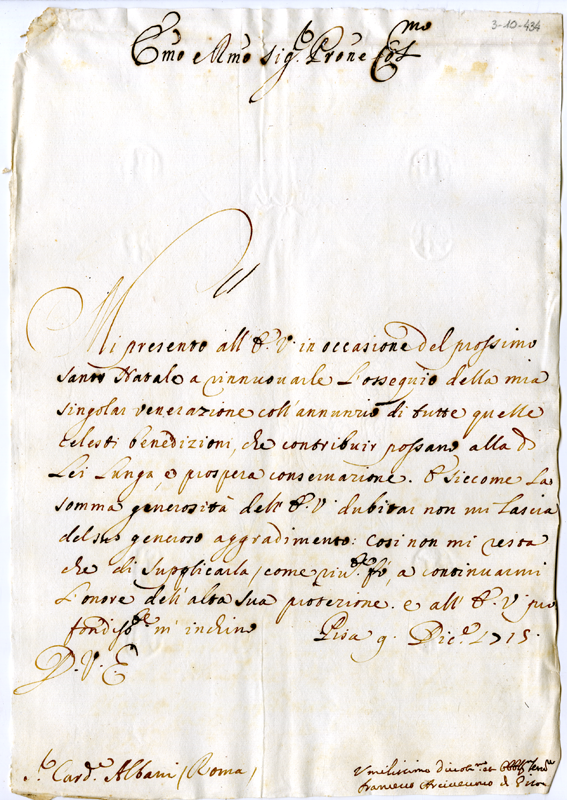 3-10-434
Emo e Rmo Sig.r Prone Col.mo
Mi presento all'E. V. in occasione del prossimo
Santo Natale a rinnuovarle l'ossequio della mia
singolar venerazione coll'annunzio di tutte quelle
celesti benedizioni, che contribuir possano alla di
Lei lunga, e prospera conservazione. E siccome la
somma generosità dell'E. V. dubitar non mi lascia
del suo generoso aggradimento: così non mi resta
che di supplicarla, come riv.te fò, a continuarmi
l'onore dell'alta sua protezione. e all'E. V. pro
fondiss.te m'inchino Pisa 9. Dic.e 1715.
D. V. E.
S.r Card.e Albani (Roma)
Vmilissimo Diuot.o et Obblig.
francesco Arciuescouo di Pisa